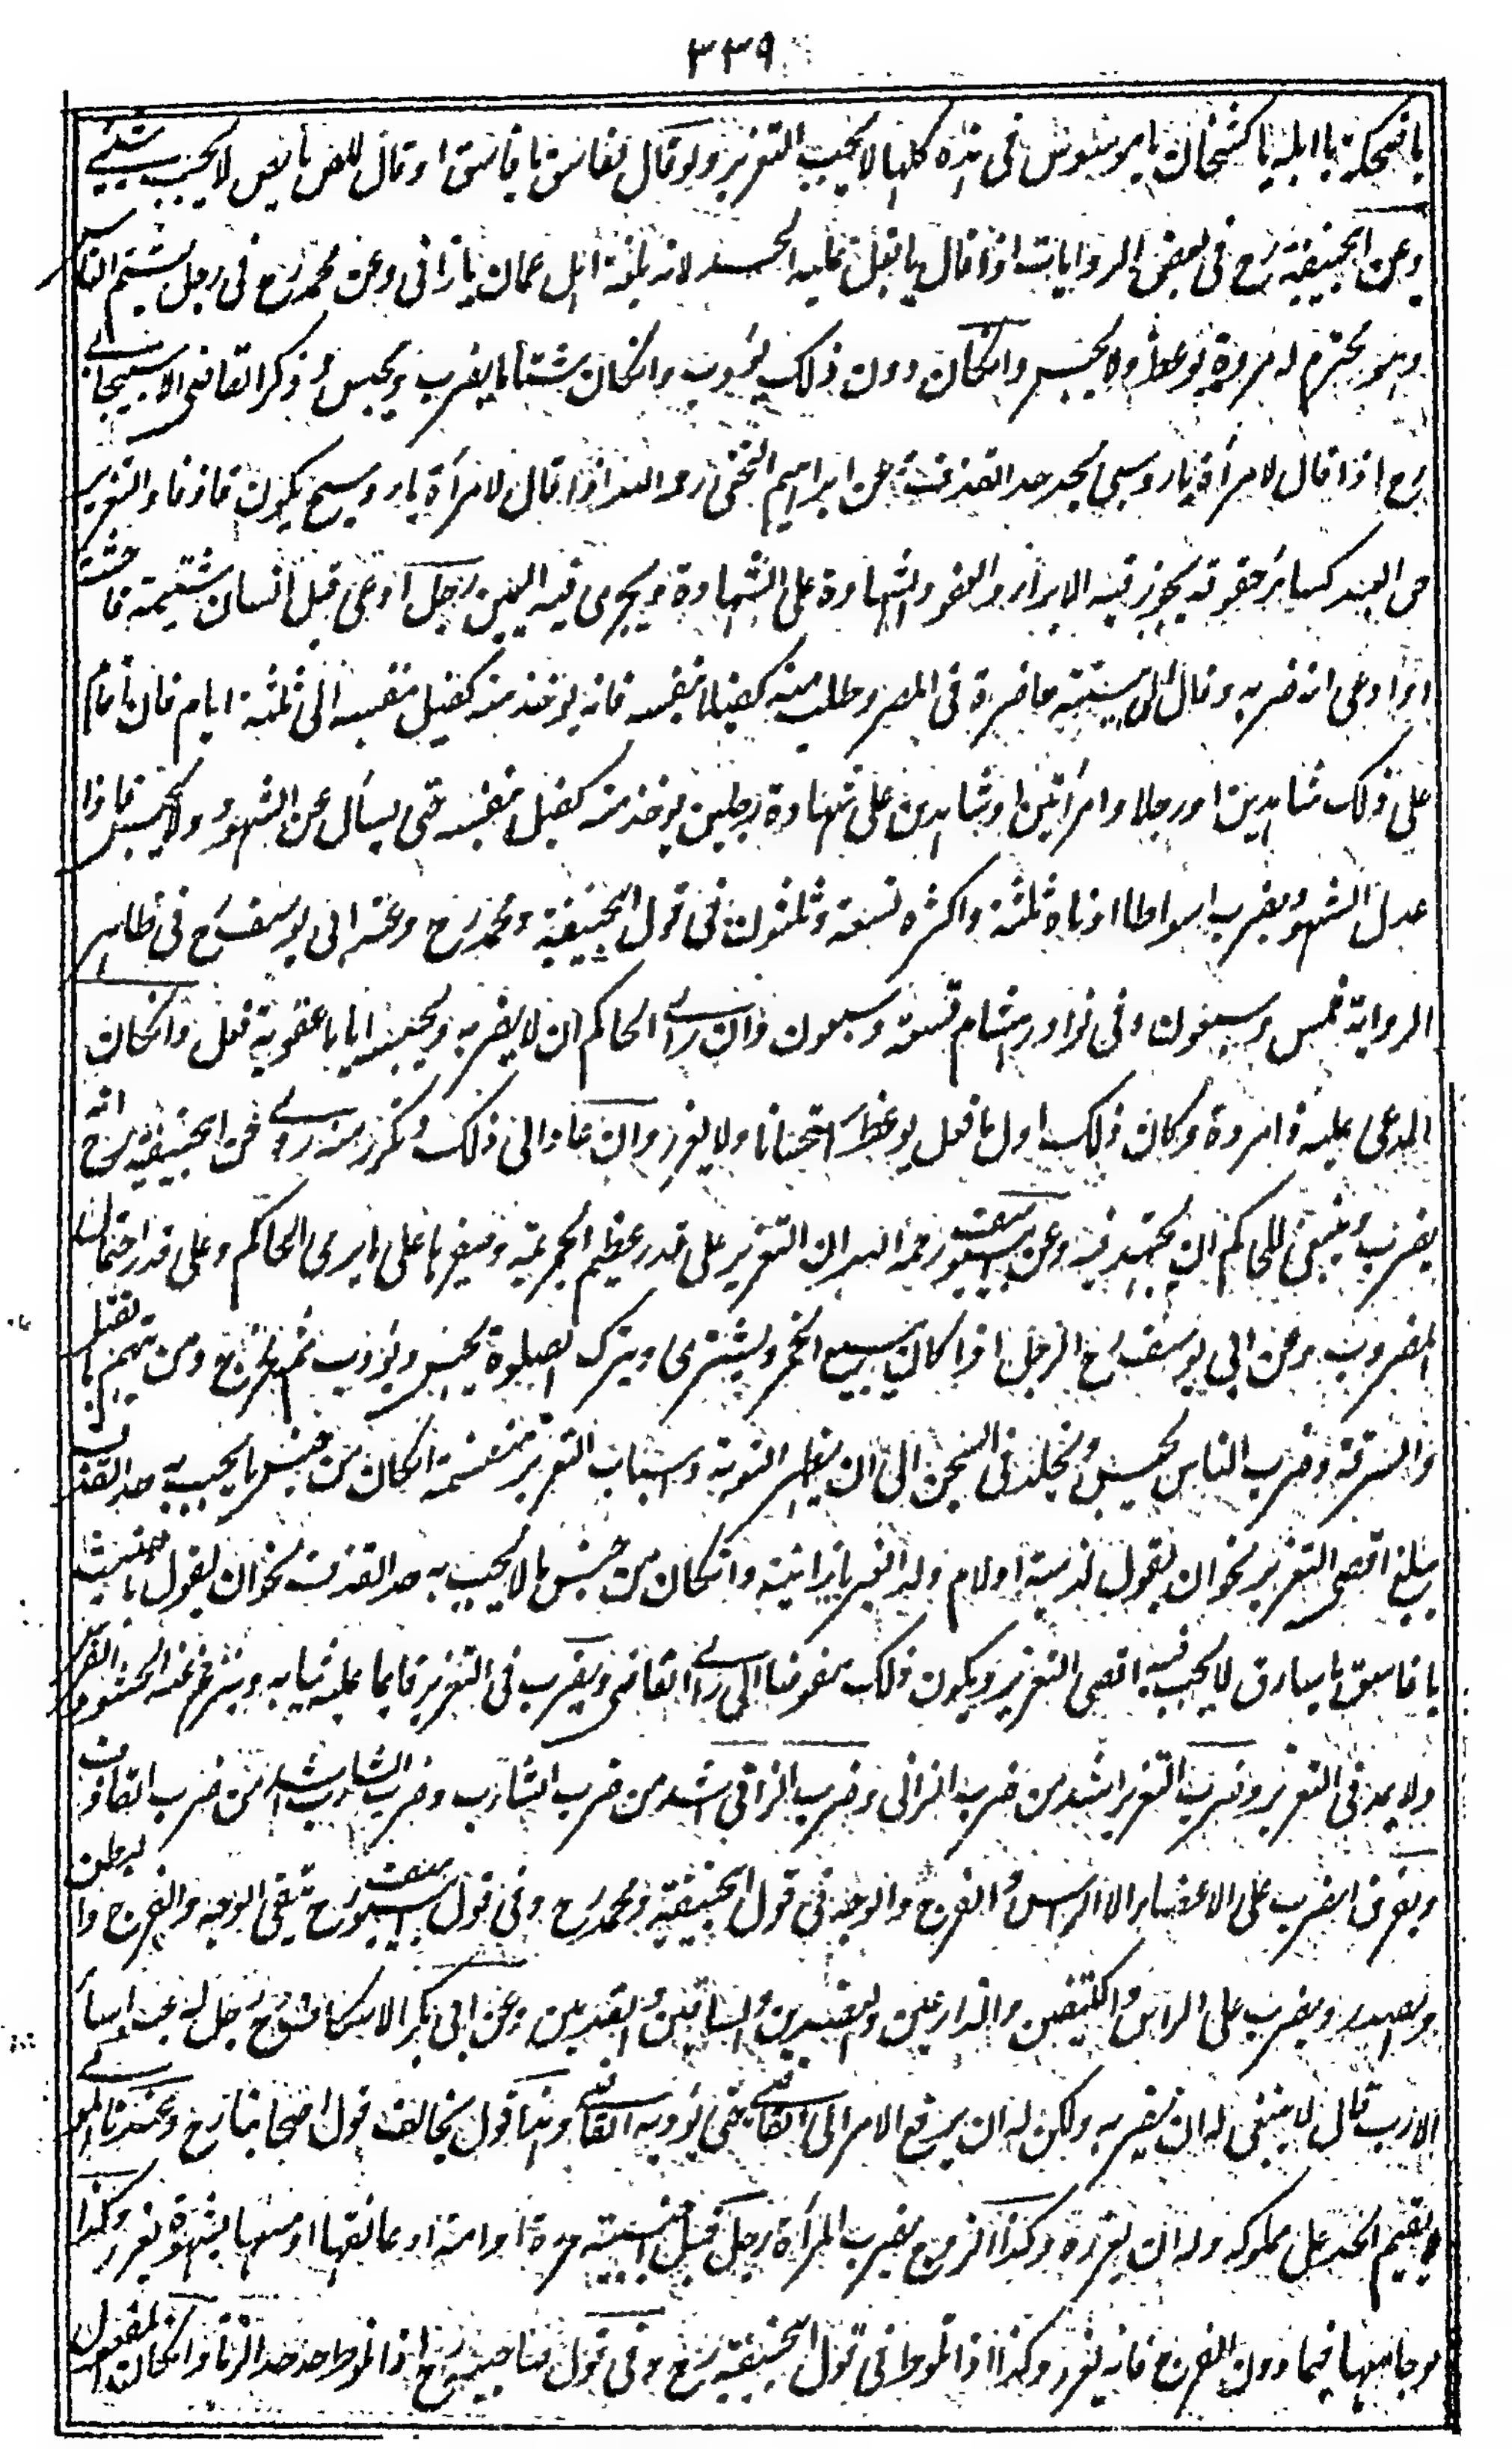 ۳۳۹
يا ضحكة يا ابله يا كشخان يا موسوس فى هذه كلها لا يجب التعزير ولو قال لفاسق يا فاسق او قال للص يا لص لا يجب شيئ
وعن ابيحنيفة رح فى بعض الروايات اذا قال يا بغل عليه الحد لانه بلغة اهل عمان يا زانى وعن محمد رح فى رجل يشتم الناس
وهو محترم له مروة يوعظ ولا يحبس وانكان دون ذلك يؤدب وانكان شتاما يضرب ويحبس وذكر القاضى الاسبيجابى
رح اذا قال لامرأة يا روسبى يحد حد القذف عن ابراهيم النخعى رحمه الله اذا قال لامرأة يا روسبح يكون قاذفا والتعزير
حق العبد كسائر حقوقه يجوز فيه الابراء والعفو والشهادة على الشهادة ويجرى فيه اليمين رجل ادعى قبل انسان شتيمة فاحشة
او ادعى انه ضربه وقال لى بينة حاضرة فى المصر وطلب منه كفيلا بنفسه فانه يوخذ منه كفيل بنفسه الى ثلثة ايام فان اقام
على ذلك شاهدين او رجلا وامرأتين او شاهدين على شهادة رجلين يوخذ منه كفيل بنفسه حتى يسأل عن الشهود ولا يحبس فاذا
عدل الشهود يضرب اسواطا ادناه ثلثة واكثره تسعة وثلثون فى قول ابيحنيفة ومحمد رح وعند ابى يوسف رح فى ظاهر
الرواية خمس وسبعون وفى نوادر هشام تسعة وسبعون وان رأى الحاكم ان لا يضربه ويحبسه اياما عقوبة فعل وانكان
المدعى عليه ذا مروة وكان ذلك اول ما فعل يوعظ استحسانا ولا يعزر وان عاد الى ذلك وتكرر منه روى عن ابيحنيفة رح انه
يضرب وينبغى للحاكم ان يجتهد فيه وعن ابيوسف رحمه الله ان التعزير على قدر عظيم الجريمة وصغرها على ما يرى الحاكم وعلى قدر احتمال
المضروب وعن ابى يوسف رح الرجل اذا كان يبيع الخمر ويشترى ويترك الصلوة يحبس ويؤدب ثم يخرج ومن يتهم بالقتل
والسرقة وضرب الناس يحبس ويخلد فى السجن الى ان يظهر التوبة واسباب التعزير منقسمة انكان من جنس ما يجب به حد القذف
يبلغ اقصى التعزير نحو ان يقول لذمية او لام ولد الغير يا زانية وانكان من جنس ما لا يجب به حد القذف نحو ان يقول يا خبيث
يا فاسق يا سارق لا يجب فيه اقصى التعزير ويكون ذلك مفوضا الى رأى القاضى ويضرب فى التعزير قائما عليه ثيابه وينزع عنه الحشو والفرو
ولا يمد فى التعزير وضرب التعزير اشد من ضرب الزانى وضرب الزانى اشد من ضرب الشارب وضرب الشارب اشد من ضرب القاذف
ويفرق الضرب على الاعضاء الا الرأس والفرج والوجه فى قول ابيحنيفة ومحمد رح وفى قول ابيوسف رح يتقى الوجه والفرج والبطن
والصدر ويضرب على الراس والكتفين والذراعين والعضدين والساقين والقدمين وعن ابى بكر الاسكاف رح رجل له عبد اساء
الادب قال لا ينبغى له ان يضربه ولكن له ان يرفع الامر الى القاضى حتى يؤدبه القاضى وهذا قول يخالف قول اصحابنا رح وعندنا المولى
لا يقيم الحد على مملوكه وله ان يعزره وكذا الزوج يضرب المرأة رجل قبل اجنبية حرة او امة او عانقها او مسها بشهوة يعزر وكذا
لو جامعها فيما دون الفرج فانه يعزر وكذا اذا تلوط فى قول ابيحنيفة رح وفى قول صاحبيه رح اذا تلوط حد حد الزنا وانكان المفعول